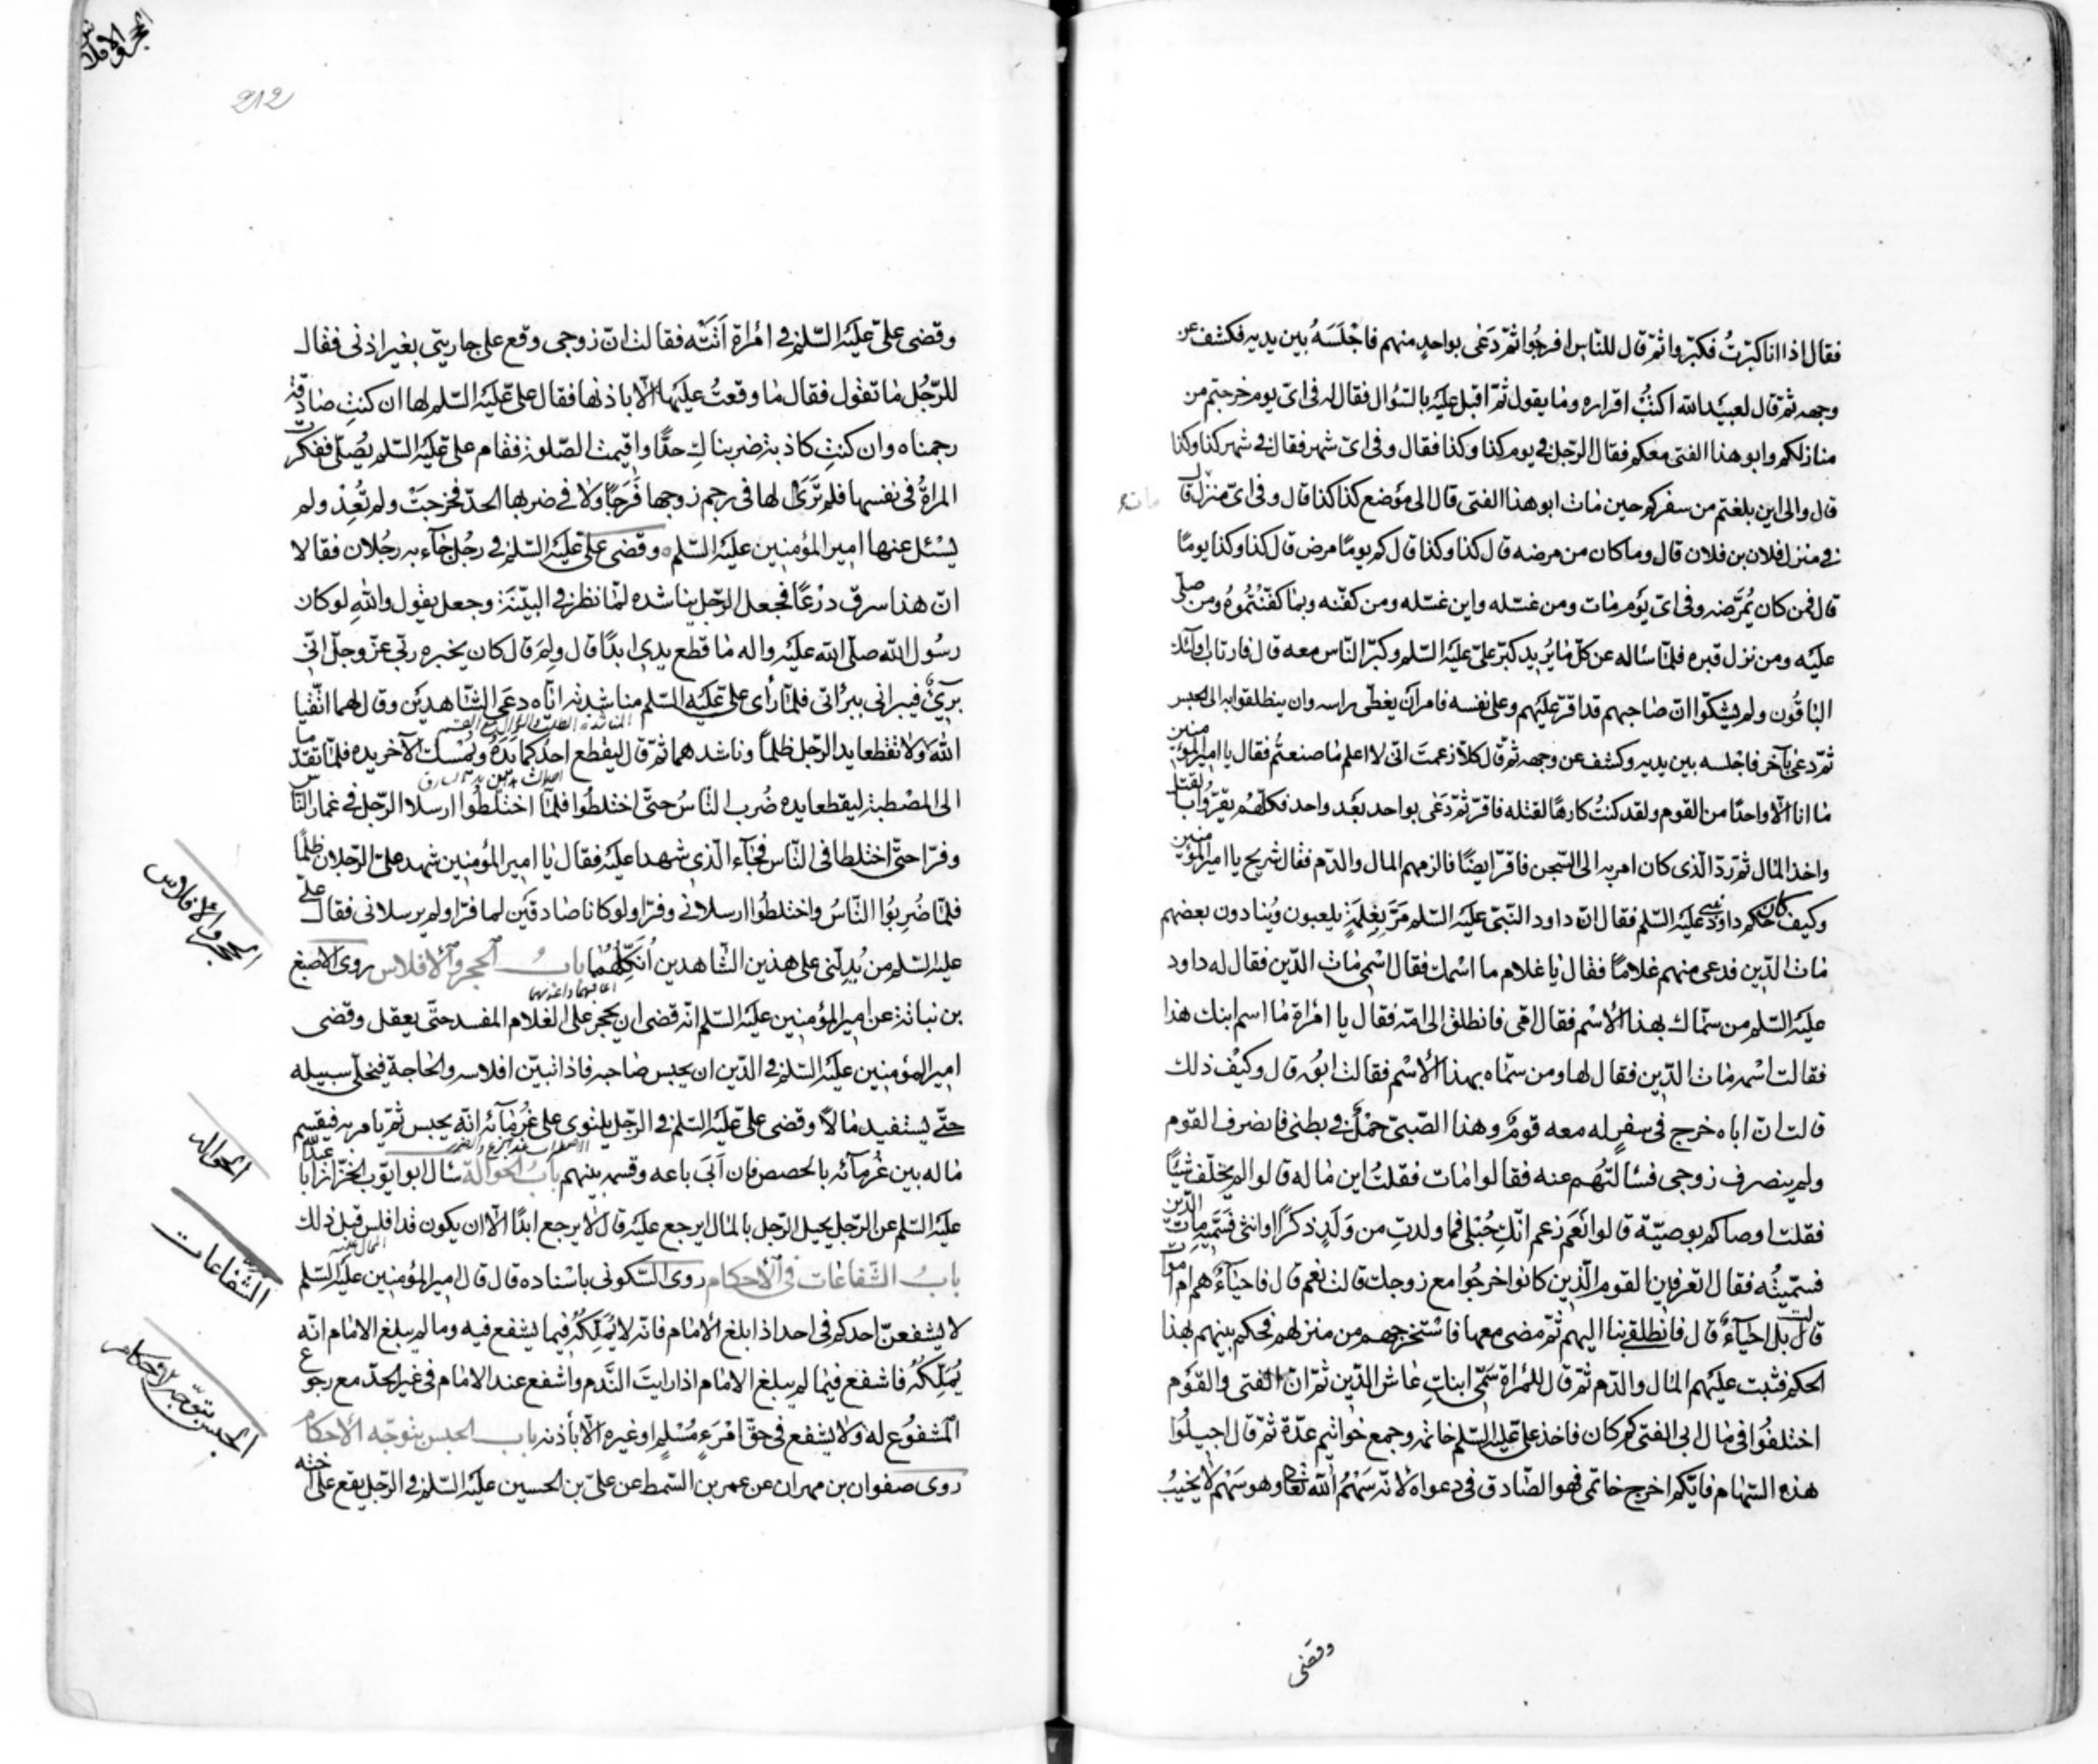 فقال اذا انا كبّرتُ فكبّروا ثمّ قال للنّاس افرجُوا ثمّ دَعٰى بواحدٍ منهم فاجْلَسَهُ بين يديه فكشف عن
وجهه ثم قال لعبيد الله اكتبُ اقراره وما يقول ثمّ اقبل عليَه بالسّؤال فقال له فى اىّ يوم خرجتم من
منازلكم وابو هذا الفتى معكم فقال الرّجل فى يوم كذا وكذا فقال وفى اىّ شهر فقال فى شهر كذا وكذا
قال والى اين بلغتم من سفركم حين مات ابو هذا الفتى قال الى موْضع كذا كذا قال وفى اىّ منزل قال
فى منزل فلان بن فلان قال وما كان من مرضه قال كذا وكذا قال كم يومًا مرض قال كذا وكذا يومًا
قال فمن كان يُمرّضه وفى اىّ يوْم مات ومن غسّله واين غسّله ومن كفّنه وبما كفّنْتُموُهُ ومن صلّى
عليَه ومن نزل قبره فلمّا ساله عن كلّ ما يُريد كبّر علىّ عليَه السّلم وكبّر النّاس معه قال فارتاب اولئك
الباقُون ولم يشكّوا انّ صاحبهم قد اقرّ عليَهم وعلى نفسه فامر انْ يغطّى راسه وان ينطلقوا به الى الحبس
ثمّ دعى باخر فاجْلسه بين يديه وكشف عن وجهه ثمّ قال كلّا زعمتَ انّى لا اعلم ما صنعتُم فقال يا امير المؤمنين
ما انا الّا واحدًا من القوم ولقد كنتُ كارهًا لقتله فاقرّ ثمّ دَعٰى بواحد بعْد واحد فكلّهُم يقرّ بالقتل
واخذ المال ثمّ ردّ الّذى كان امر به الى السّجن فاقرّ ايضًا فالزمهم المال والدّم فقال شريح يا امير المؤمنين
وكيف كان حكم داود نبى عليَه السّلم فقال انّ داود النّبىّ عليَه السّلم مرّ بِغِلْمَةٍ يلعبون ويُنادون بعضهم
مات الدّين فدعى منهم غلامًا فقال يا غلام ما اسْمك فقال اسْمى مات الدّين فقال له داود
عليَه السّلم من سمّاك بهذا الاسْم فقال امّى فانطلق الى امّه فقال يا امْراة ما اسم ابنك هذا
فقالت اسْمه مات الدّين فقال لها ومن سمّاه بهذا الاسْم فقالت ابوُه قال وكيْف ذلك
قالت انّ اباه خرج فى سفرٍ له معه قومٌ وهذا الصّبىّ حَمْلٌ فى بطنى فانصرف القوم
ولم ينصرف زوجى فسالتُهُم عنه فقالوا مات فقلتُ اين ماله قالوا لم يخلّف شيئًا
فقلت اوصاكم بوصيّة قالوا نَعَم زعم انّكِ حُبْلى فما ولدتِ من وَلَدٍ ذكرًا او انثى فَسَمّيهِ مات الدّين
فسمّيتُه فقال اتعرفين القوم الّذين كانوا خرجُوا مع زوجك قالت نعم قال فاحياۤءٌ هم ام اموات
قالت بل احياۤءٌ قال فانطلقى بنا اليهم ثمّ مضى معها فاسْتخرجهم من منزلهم فحكم بينهم بهذا
الحكم فثبت عليَهم المال والدّم ثمّ قال للمْراة سَمّى ابنكِ عاش الدّين ثمّ انّ الفتى والقوْم
اختلفوُا فى مال ابى الفتى كم كان فاخذ علىّ عليَه السّلم خاتمه وجمع خواتيم عدّة ثمّ قال اجيلُوا
هذه السّهام فايّكم اخرج خاتمى فهو الصّادق فى دعواه لانّه سَهْمُ الله تعالى وهو سَهْم لا يخيبُ
وقضى
الحجر والافلاس
212
وقضى علىّ عليَه السّلم فى امْراة اَتَتْه فقالت انّ زوجى وقع على جاريتى بغير اذنى فقال
للرّجُل ما تقول فقال ما وقعتُ عليَها الّا باذنها فقال علىّ عليَه السّلم لها ان كنتِ صادقة
رجمناه وان كنتِ كاذبة ضربناكِ حدًّا واقيمت الصّلوة فقام علىّ عليَه السّلم يُصلّى ففكرت
المراةُ فى نفسها فلم تَرَ لها فى رجم زوجها فَرَجًا ولا فى ضربها الحدّ فخرجَتْ ولم تعُدْ ولم
يسْئل عنها امير المؤمنين عليَه السّلم وقضى علىّ عليَه السّلم فى رجُل جاۤء به رجُلان فقالا
انّ هذا سرق درْعًا فجعل الرّجل يناشده لمّا نظر فى البيّنَة وجعل يقول والله لو كان
رسُول الله صلّى الله عليَه واله ما قطع يدى ابدًا قال ولِمَ قال كان يخبره ربّى عزّ وجلّ انّى
برىۤءٌ فيبرانى ببراتى فلمّا رأى علىّ عليَه السّلم مناشدته ايّاه دعَى الشّاهديْن وقال لهما اتّقيا
الله ولا تقطعا يد الرّجل ظلمًا وناشدهما ثمّ قال ليقطع احدُكما يَدَهُ ويُمْسك الآخر يده فلمّا تقدّما
الى المصْطبة ليقطعا يده ضُرب النّاسُ حتّى اختلطُوا فلمّا اختلطُوا ارسلا الرّجل فى غمار النّاس
وفرّا حتّى اختلطا فى النّاس فجاۤء الّذى شهدا عليَه فقال يا امير المؤمنين شهد علىّ الرّجلان ظلمًا
فلمّا ضُرِبُوا النّاسُ واختلطُوا ارسلانى وفرّا ولو كانا صادقيْن لما فرّا ولم يرسلانى فقال علىّ
عليَه السّلم من يُدِلّنى على هذين الشّاهدين اُنَكِّلْهُما بابُ الحجر والافلاس روى الاصبغ
بن نباتة عن امير المؤمنين عليَه السّلم انّه قضى ان يحجر على الغلام المفسد حتّى يعقل وقضى
امير المؤمنين عليَه السّلم فى الدّين ان يحبس صاحبه فاذا تبيّن افلاسه والحاجة فيخلّى سبيله
حتّى يستفيد مالًا وقضى علىّ عليَه السّلم فى الرّجل يلتوى على غُرماۤئه انّه يحبس ثمّ يامر به فيقسم
ماله بين غُرماۤئه بالحصص فان اَبَى باعه وقسمه بينهم بابُ الحوالة سال ابو ايّوب الخزّاز ابا عبد الله
عليَه السّلم عن الرّجل يحيل الرّجل بالمال ايرجع عليَه قال لا يرجع ابدًا الّا ان يكون قد افلس قبل ذلك
بابُ الشّفاعات فى الاحكام روى السّكونى باسْناده قال قال امير المؤمنين عليَه السّلم
لا يشفعنّ احدكم فى احد اذا بلغ الامام فانّه لا يُمْلِكُهُ فيما يشفع فيه وما لم يبلغ الامام انّه
يُمْلِكُهُ فاشفع فيما لم يبلغ الامام اذا رايتَ النَّدم واشفع عند الامام فى غير الحدّ مع رجوع
المشفُوع له ولا يشفع فى حقّ امْرَءٍ مُسْلمٍ او غيره الّا باْذنه باب الحبس بتوجّه الاحكام
روى صفوان بن مهران عن عمر بن السّمط عن علىّ بن الحسين عليَه السّلم فى الرّجل يقع على اخته
الحجر والافلاس
الحواله
الشّفاعات
الحبس بتوجّه الاحكام